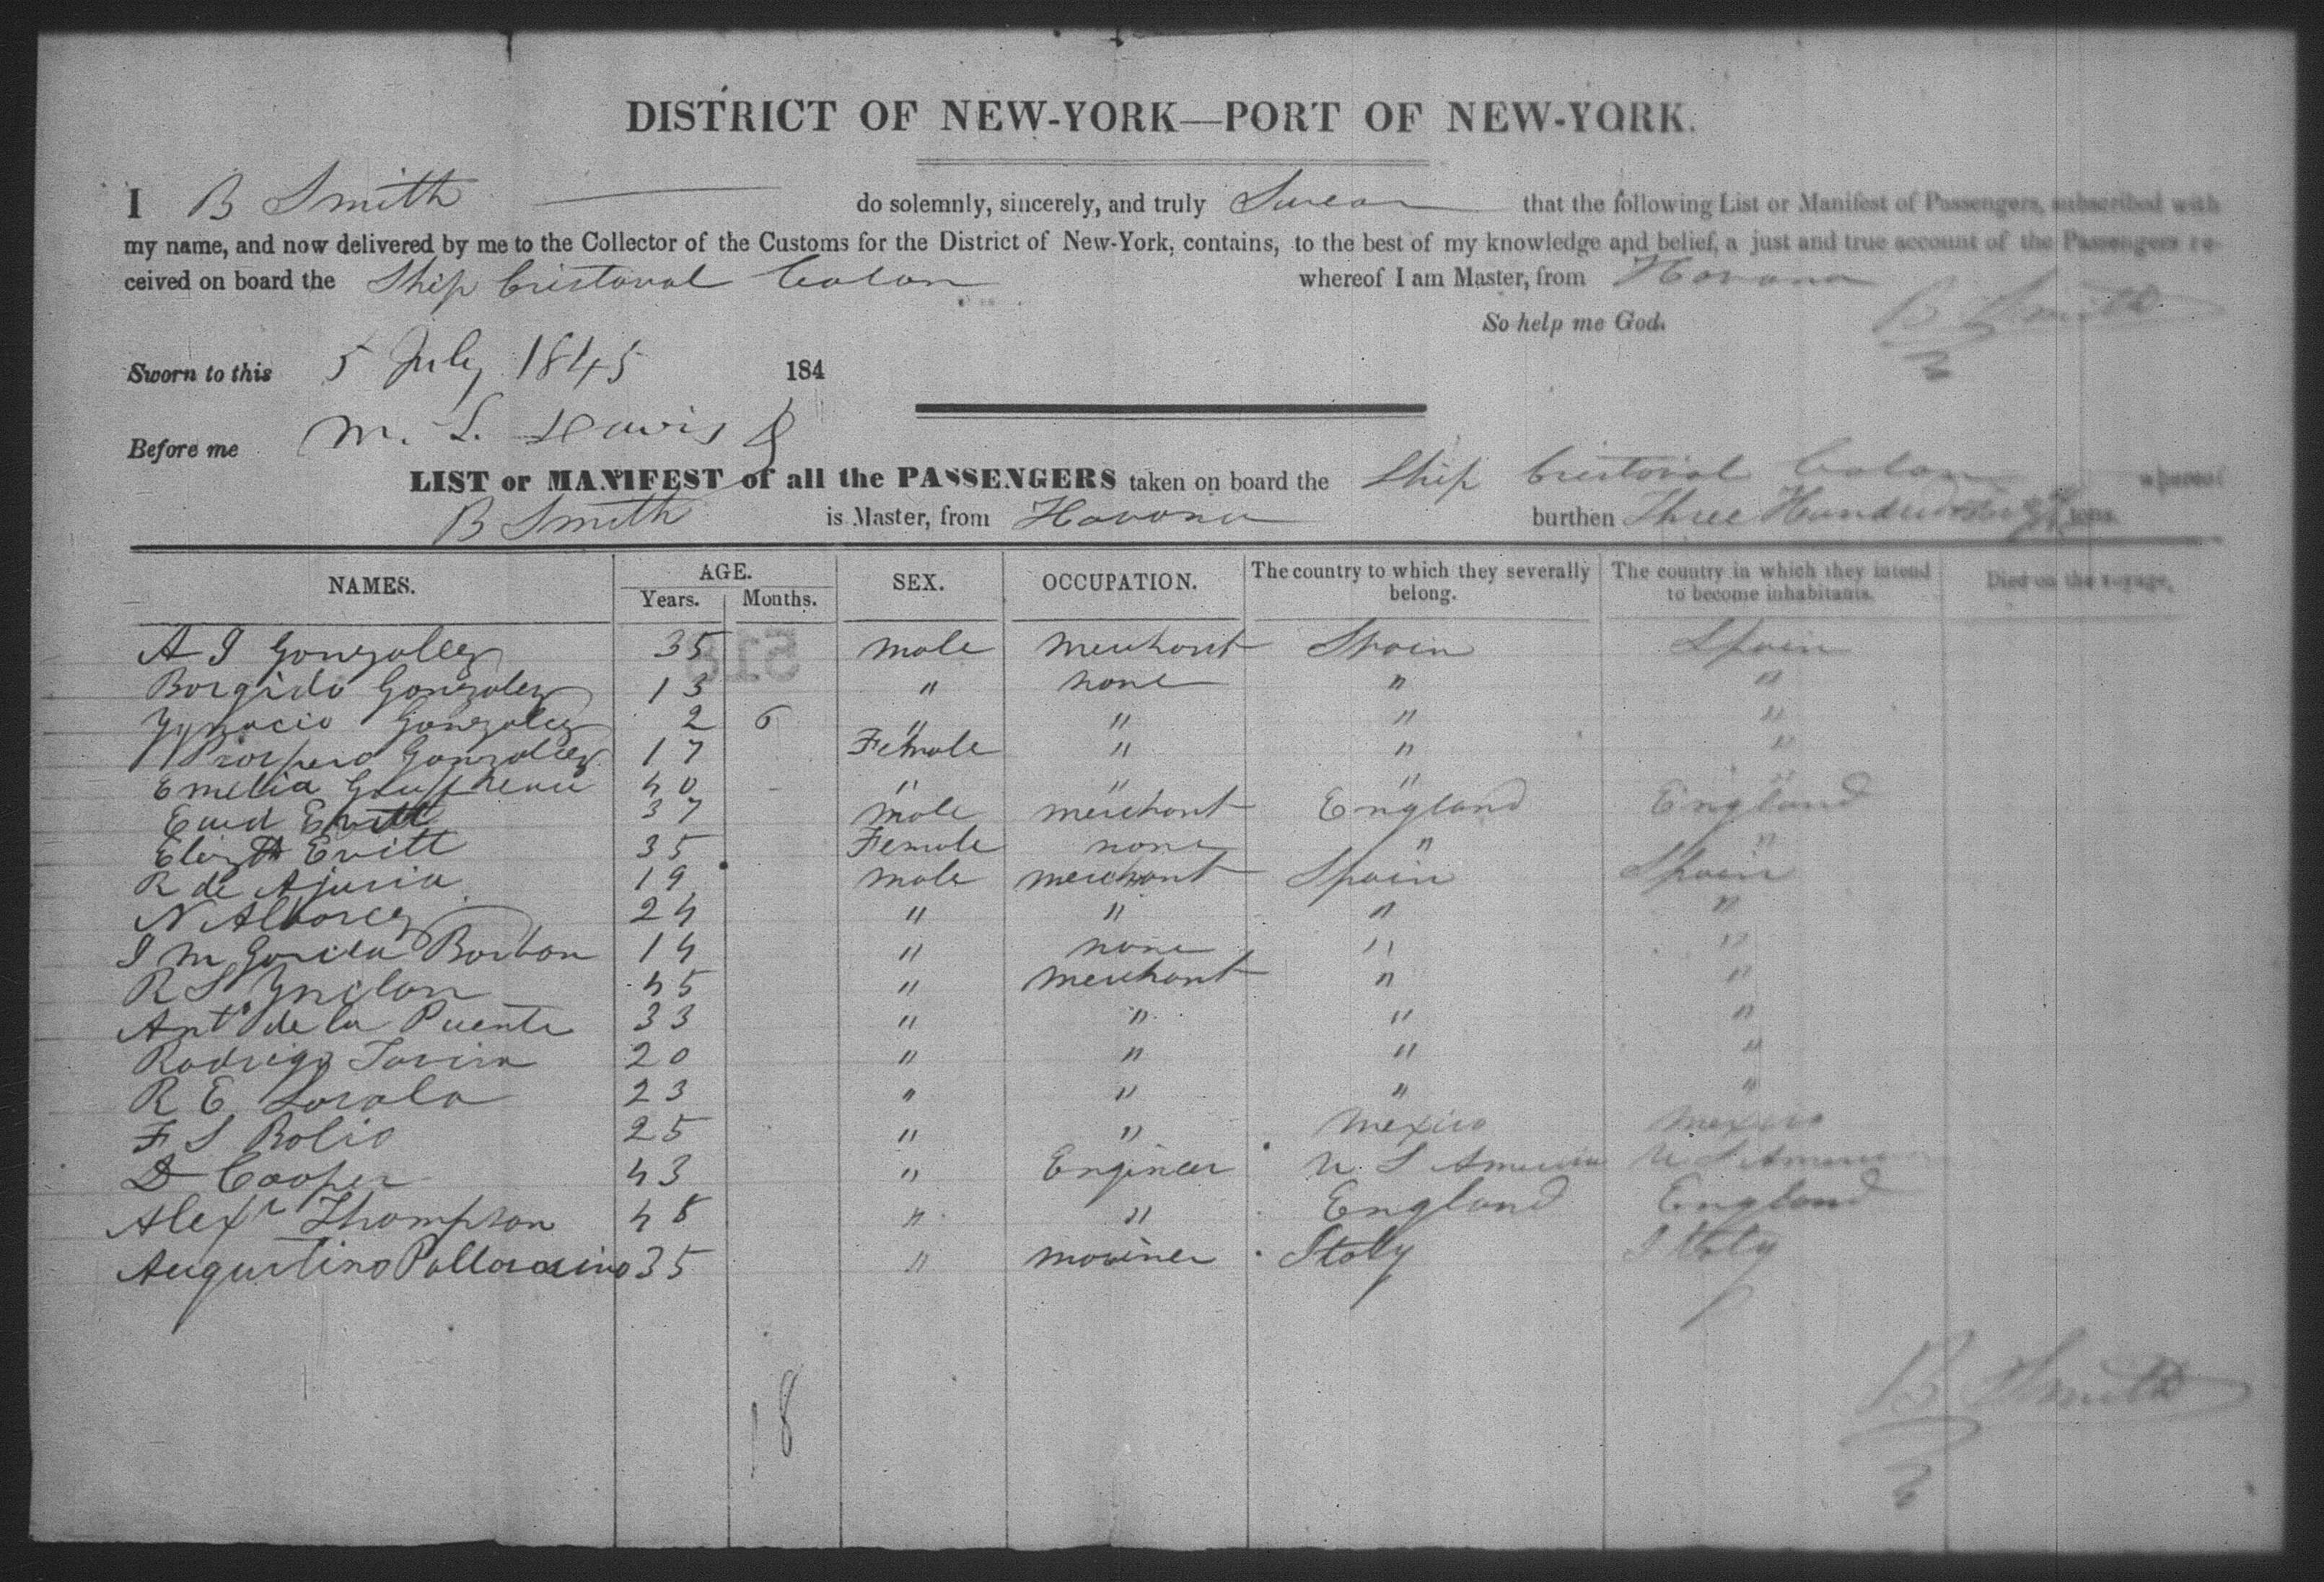 DISTRICT OF NEW-YORK—PORT OF NEW-YORK.
I B Smith do solemnly, sincerely, and truly Swear that the following List or Manifest of Passengers, subscribed with
my name, and now delivered by me to the Collector of the Customs for the District of New-York, contains, to the best of my knowledge and belief, a just and true account of the Passengers re-
ceived on board the Ship Cristoval Colon whereof I am Master, from Havana
So help me God. B Smith
Sworn to this 5 July 1845 184
Before me M. L. Davis
LIST or MANIFEST of all the PASSENGERS taken on board the Ship Cristoval Colon whereof
B Smith is Master, from Havana burthen Three Hundred tons.
NAMES. AGE. Years. Months. SEX. OCCUPATION. The country to which they severally belong. The country in which they intend to become inhabitants. Died on the voyage.
A J Gonzalez 35 male merchant Spain Spain
Gonzalez 13 " none " "
Ygnacio Gonzalez 2 6 " " " "
Prospero Gonzalez 17 Female " " "
Emelia 40 " " " "
Evitt 37 male merchant England England
Elizth Evitt 35 Female none " "
R de Ajuria 19 male merchant Spain Spain
N Alvarez 24 " " " "
J M Garcia Borbon 14 " none " "
R S 45 " merchant " "
Anto de la Puente 33 " " " "
Rodrigo 20 " " " "
R E 23 " " " "
F S Rolio 25 " " Mexico Mexico
D Cooper 43 " Engineer U. S America U S America
Alexr Thompson 48 " " England England
Augustino 35 " mariner Italy Italy
18
B Smith